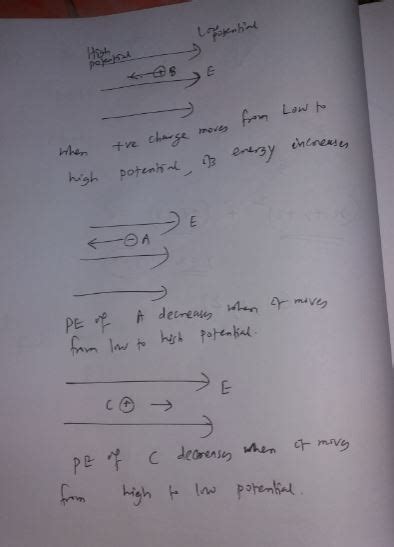 High potential
Low potential
⊕ B E
when +ve charge moves from Low to
high potential, its energy increases
E
⊖ A
PE of A decreases when it moves
from low to high potential.
E
C ⊕
PE of C decreases when it moves
from high to low potential.